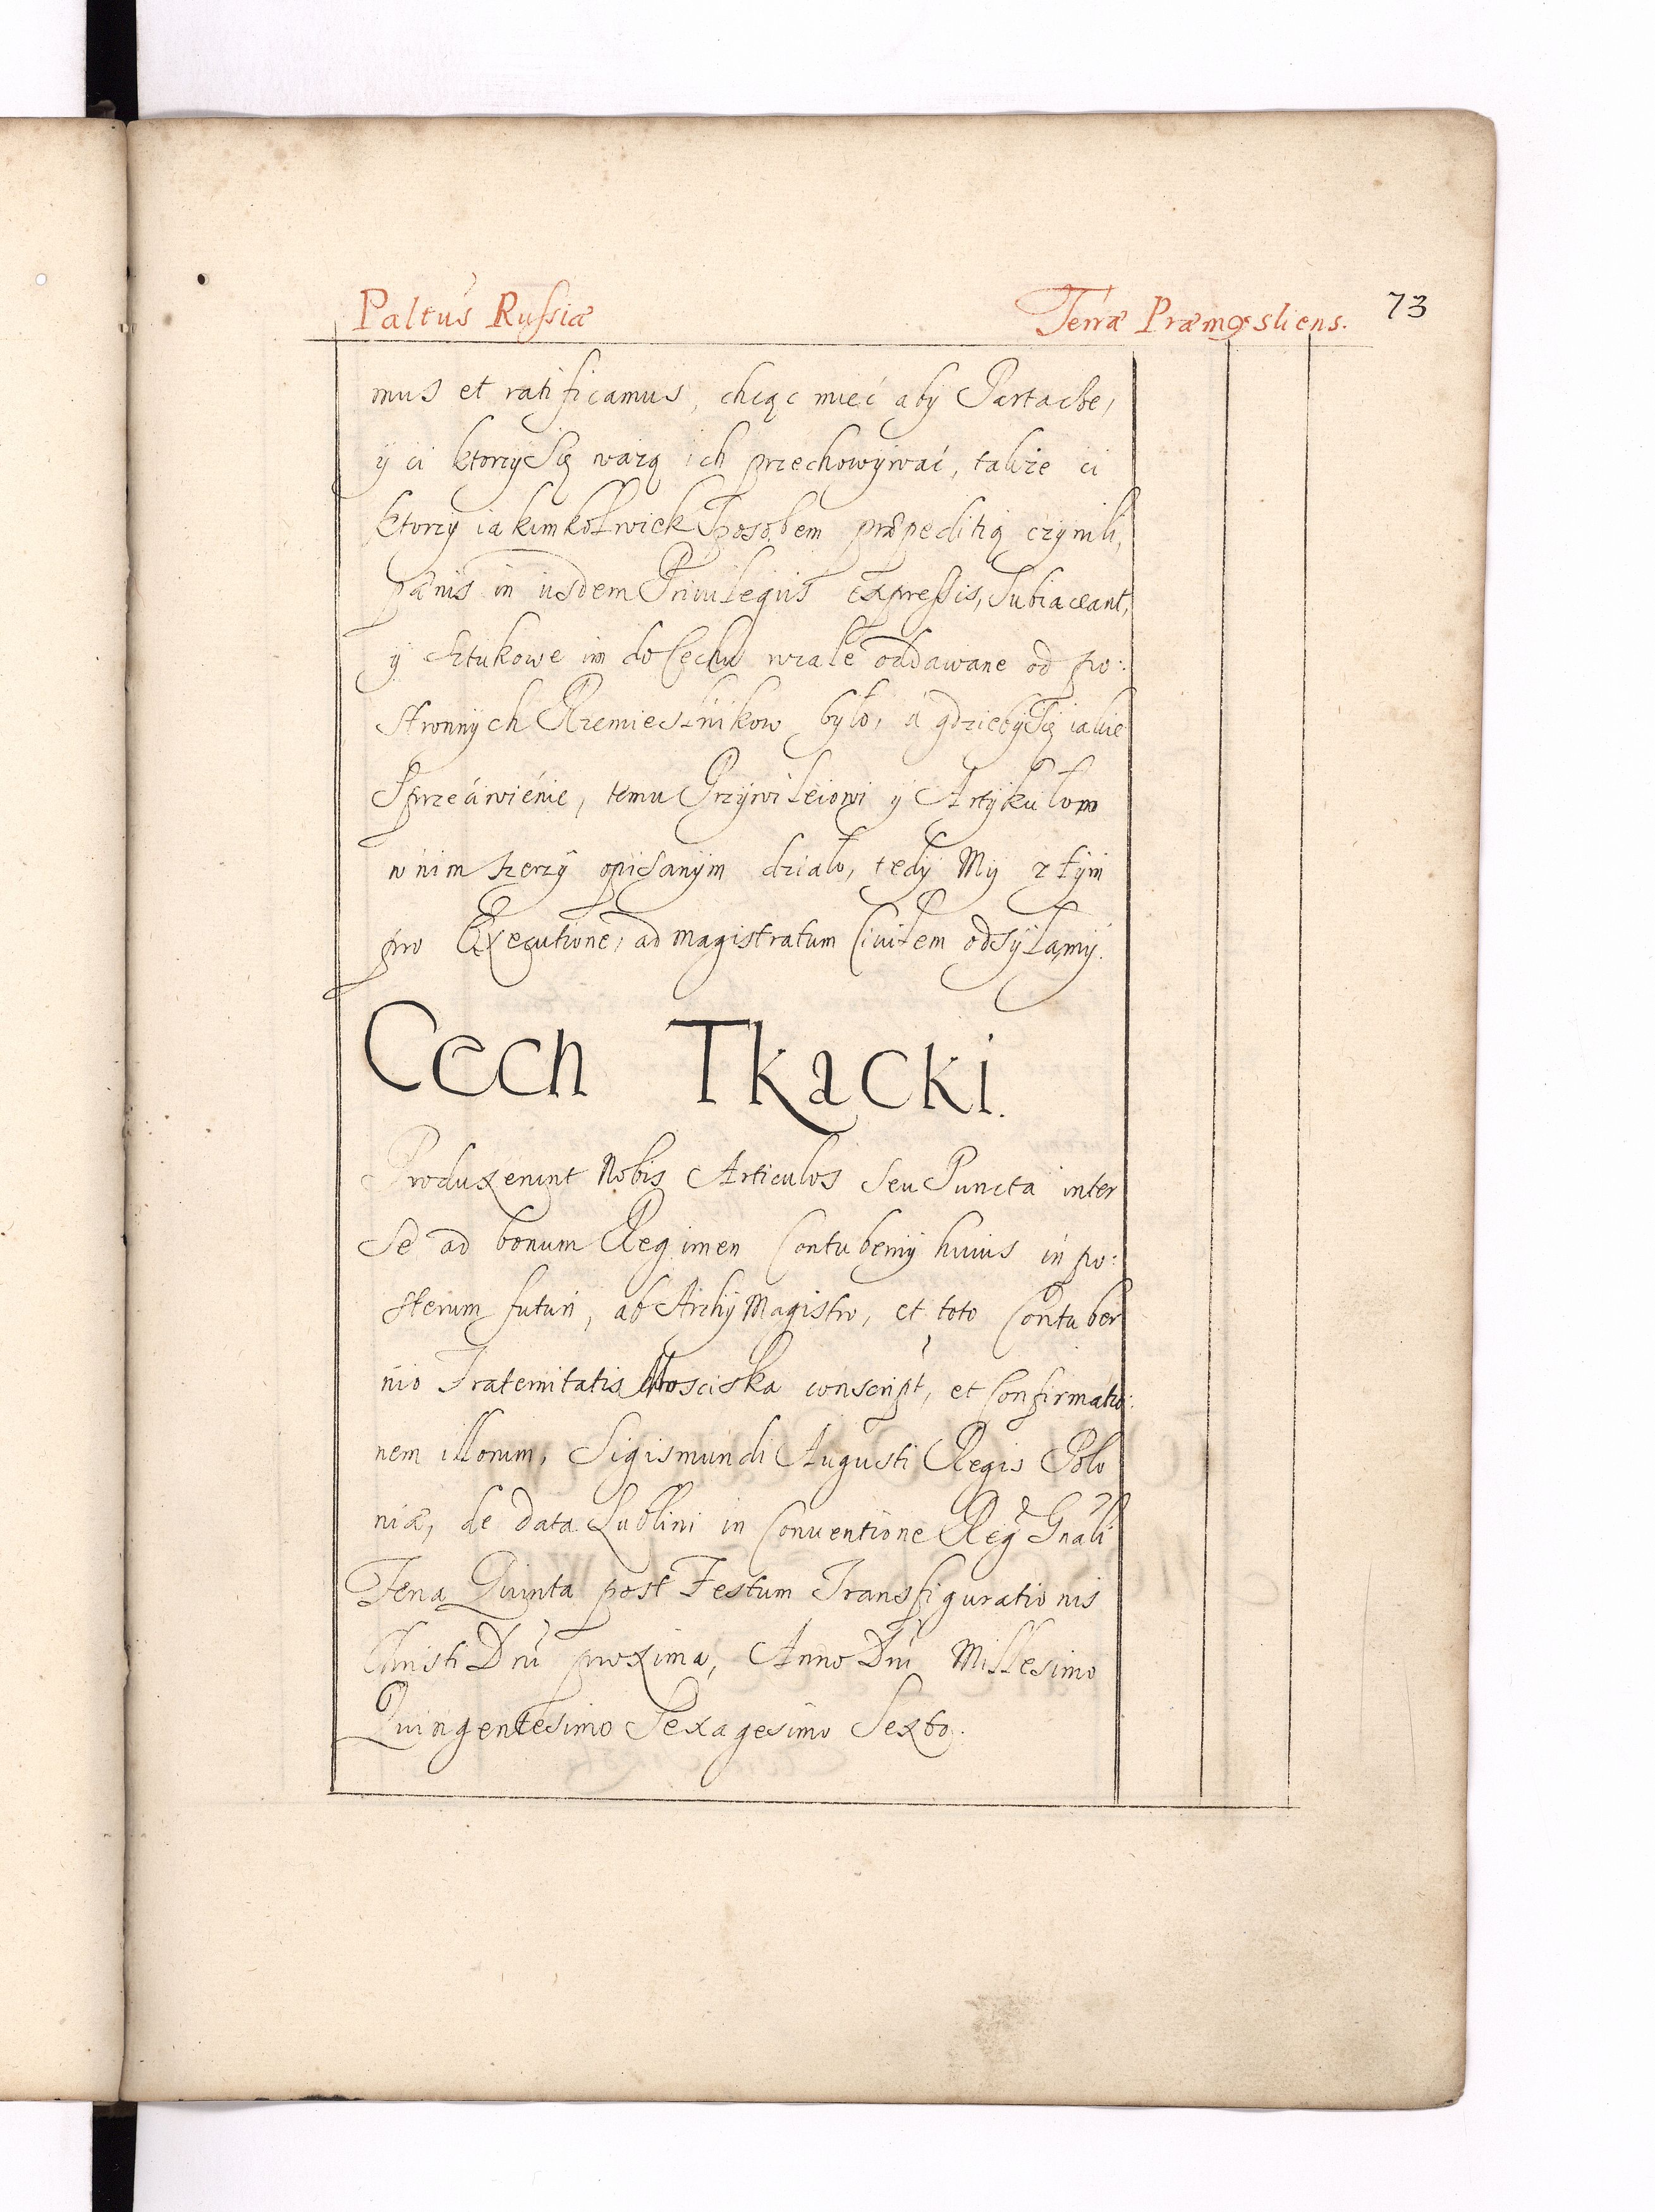 Paltus Russiæ Terræ Præmysliens. 73
mus et ratificamus, chcąc mieć aby Partacze,
y ci ktorzy się ważą ich przechowywać, także ci
ktorzy iakimkolwiek sposobem præpeditią czynili,
pænis in iisdem Priuilegiis expressis, subiaceant,
y sztukowe im do Cechu wcale oddawane od po:
stronnych Rzemieslnikow było, a gdzieby się iakie
sprzeciwienie, temu Przywileiowi y Artykułom
w nim szerzy opisanym działo, tedy My z tym
pro Executione, ad magistratum Ciuilem odsyłamy.
Cech Tkacki.
Produxerunt Nobis Articulos seu Puncta inter
se ad bonum Regimen Contubernij huius in po:
sterum futuri, ab Archymagistro, et toto Contuber
nio Fraternitatis Mosciska conscript, et Confirmatio:
nem illorum, Sigismundi Augusti Regis Polo
niæ, de data Lublini in Conuentione Regñ Gnali
Feria Quinta post Festum Transfigurationis
Christi Dni proxima, Anno Dni Millesimo
Quingentesimo Sexagesimo Sexto.